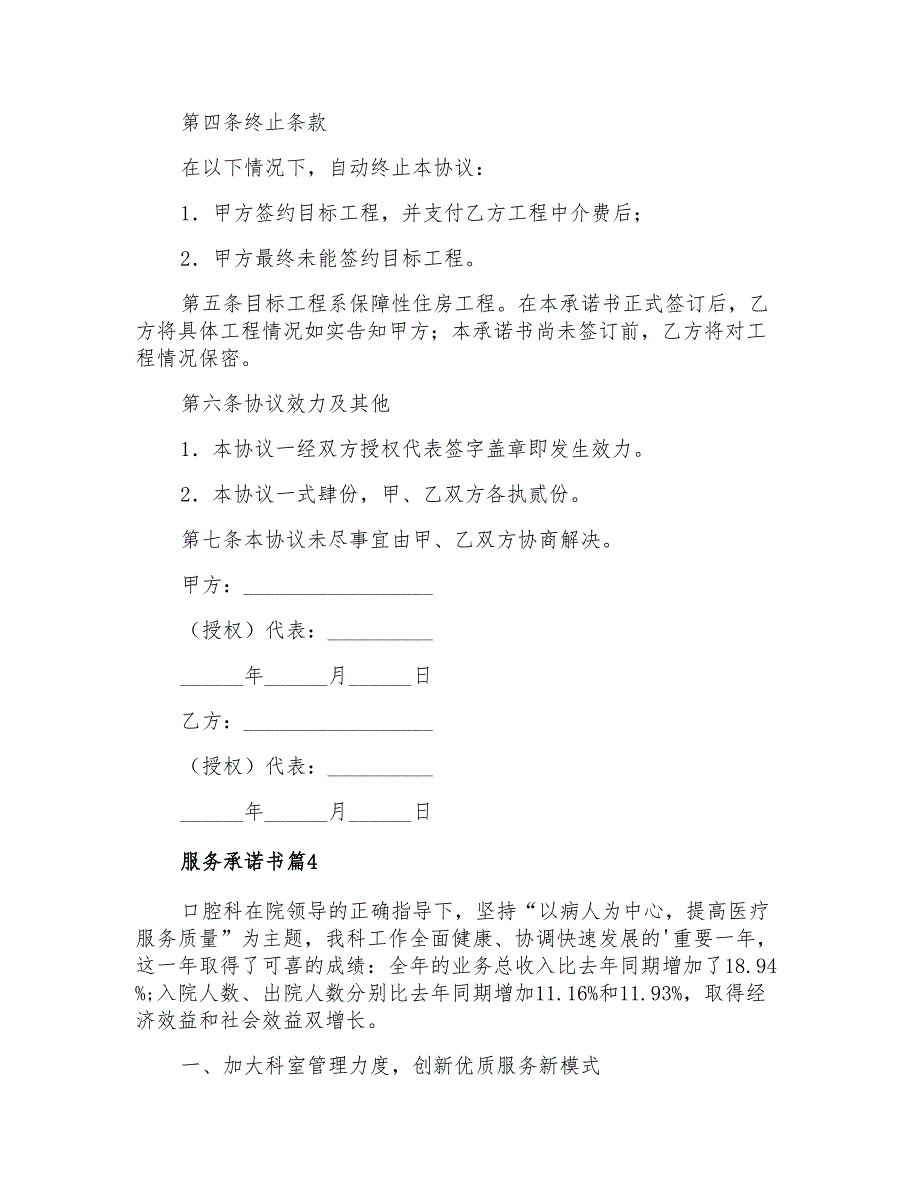 第四条终止条款
在以下情况下，自动终止本协议：
1．甲方签约目标工程，并支付乙方工程中介费后；
2．甲方最终未能签约目标工程。
第五条目标工程系保障性住房工程。在本承诺书正式签订后，乙
方将具体工程情况如实告知甲方；本承诺书尚未签订前，乙方将对工
程情况保密。
第六条协议效力及其他
1．本协议一经双方授权代表签字盖章即发生效力。
2．本协议一式肆份，甲、乙双方各执贰份。
第七条本协议未尽事宜由甲、乙双方协商解决。
甲方：__________________
（授权）代表：__________
______年______月______日
乙方：__________________
（授权）代表：__________
______年______月______日
服务承诺书篇4
口腔科在院领导的正确指导下，坚持“以病人为中心，提高医疗
服务质量”为主题，我科工作全面健康、协调快速发展的'重要一年，
这一年取得了可喜的成绩：全年的业务总收入比去年同期增加了18.94
%;入院人数、出院人数分别比去年同期增加11.16%和11.93%，取得经
济效益和社会效益双增长。
一、加大科室管理力度，创新优质服务新模式